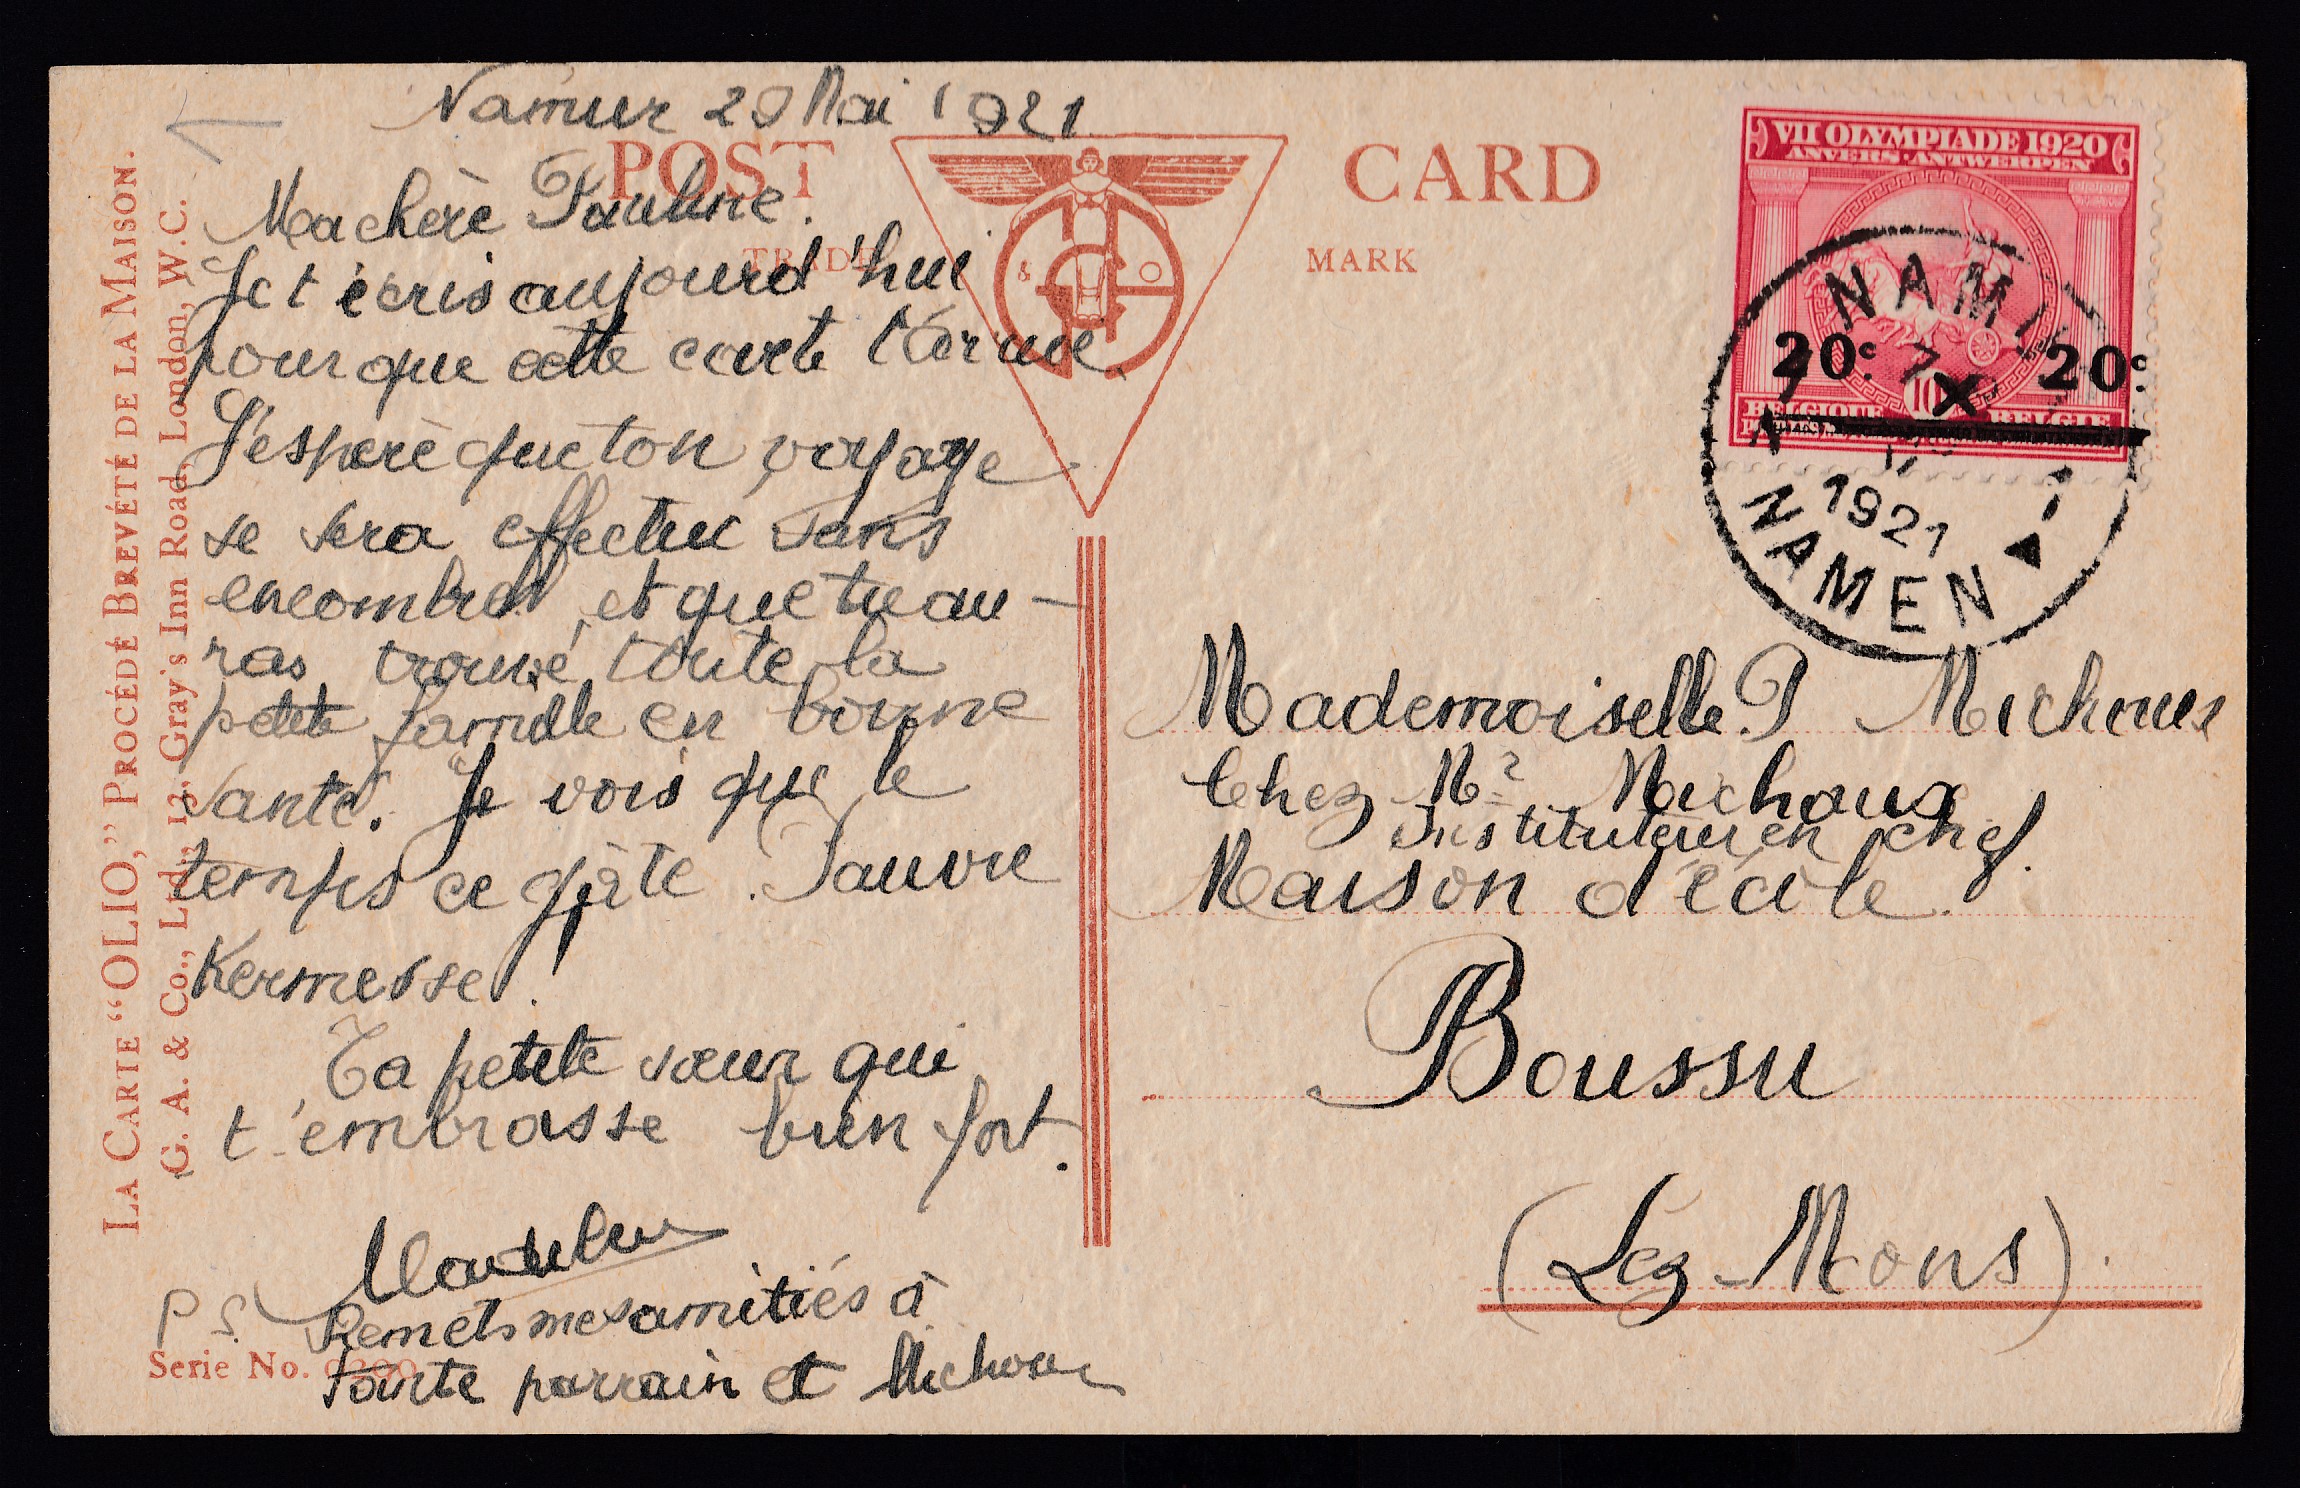 Namur 29 Mai 1921
POST CARD
TRADE MARK
Ma chère Pauline.
Je t'écris aujourd'hui
pour que cette carte t'arrive
J'espère que ton voyage
se sera effectué sans
encombre et que tu au-
ras trouvé toute la
petite famille en bonne
santé. Je vois que le
temps ce gâte. Pauvre
Kermesse!
Ta petite sœur qui
t'embrasse bien fort.
PS. Remets mes amitiés à
tante parrain et Michoux
LA CARTE "OLIO," PROCÉDÉ BREVÉTÉ DE LA MAISON.
G. A. & Co., Ltd., 13, Gray's Inn Road, London, W.C.
Serie No.
VII OLYMPIADE 1920
ANVERS·ANTWERPEN
20c. 20c.
10
BELGIQUE BELGIE
NAMUR
1921
NAMEN
Mademoiselle P Michaux
Chez Mr Michaux
Instituteur en chef.
Maison d'école.
Boussu
(Lez-Mons).